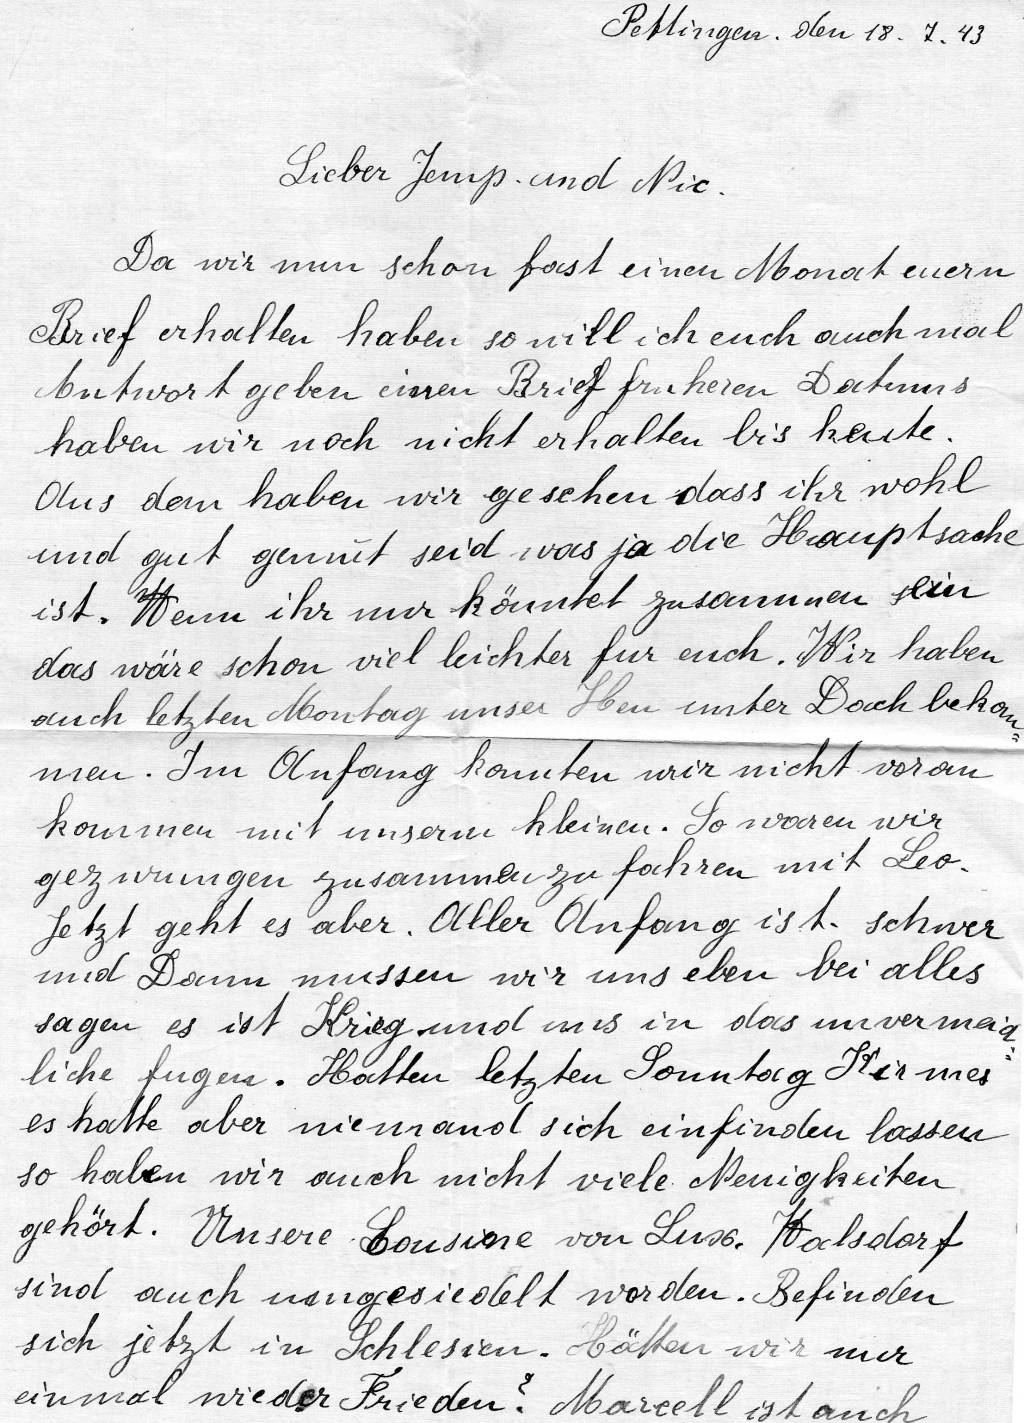 Pettingen. den 18. 7. 43
Lieber Jemp. und Nic.
Da wir nun schon fast einen Monat euern
Brief erhalten haben so will ich euch auch mal
Antwort geben einen Brief fruheren Datums
haben wir noch nicht erhalten bis heute.
Aus dem haben wir gesehen dass ihr wohl
und gut gemut seid was ja die Hauptsache
ist. Wenn ihr nur könntet zusammen sein
das wäre schon viel leichter fur euch. Wir haben
auch letzten Montag unser Heu unter Dach bekom=
men. Im Anfang konnten wir nicht voran
kommen mit unserm kleinen. So waren wir
gezwungen zusammen zu fahren mit Leo.
Jetzt geht es aber. Aller Anfang ist. schwer
und Dann mussen wir uns eben bei alles
sagen es ist Krieg und uns in das unvermeid=
liche fugen. Hatten letzten Sonntag Kirmes
es hatte aber niemand sich einfinden lassen
so haben wir auch nicht viele Neuigkeiten
gehört. Unsere Cousine von Lux. Walsdorf
sind auch umgesiedelt worden. Befinden
sich jetzt in Schlesien. Hätten wir nur
einmal wieder Frieden? Marcell ist auch